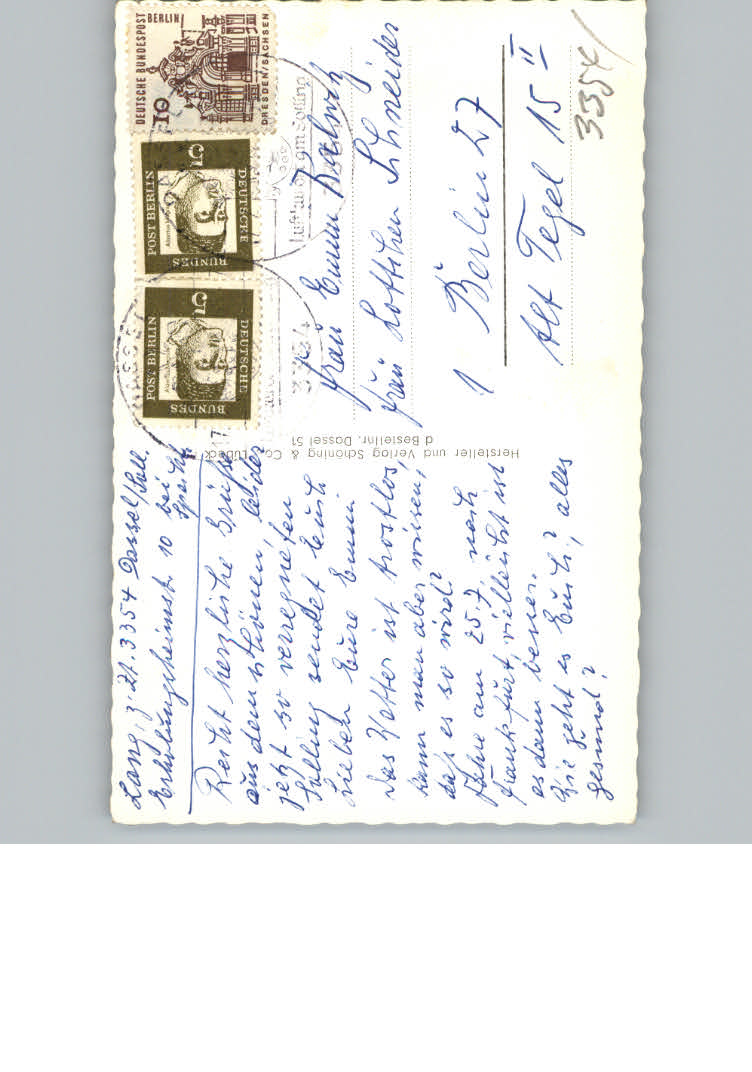 Lang, z. Zt. 3354 Dassel/Soll.
Erholungsheimstr. 10 bei
Recht herzliche Grüße
aus dem schönen, leider
jetzt so verregneten
Solling sendet Euch
Lieben Eure Emmi
Das Wetter ist trostlos,
kann man aber wissen,
daß es so wird?
Fahre am 25.7. nach
Frankfurt, vielleicht ist
es dann besser.
Wie geht es Euch? alles
gesund?
Hersteller und Verlag Schöning & Co., Lübeck
d Bestellnr. Dassel 51
DEUTSCHE BUNDESPOST BERLIN
10
DRESDEN/SACHSEN
POST BERLIN
5
DEUTSCHE
BUNDES
POST BERLIN
5
DEUTSCHE
BUNDES
DASSEL
Luftkurort am Solling
3354
Frau Emma
Frau Lottchen Schneider
1 Berlin 27
Alt Tegel 15 II
3354/